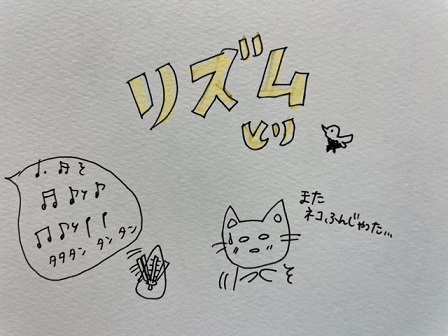 リズム
とり
また
ネコふんじゃった...
タタタン タン タン